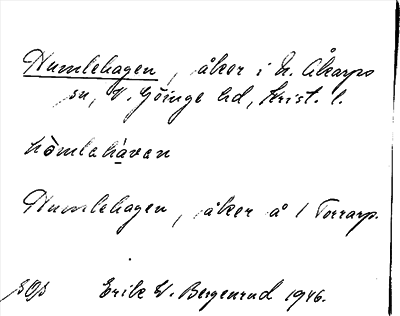 Humlehagen, åker i N. Åkarps
sn, V. Göinge hd, Krist. l.
hòmlehàven
Humlehagen, åker å 1 Torrarp.
Erik W. Bergenrud 1946.